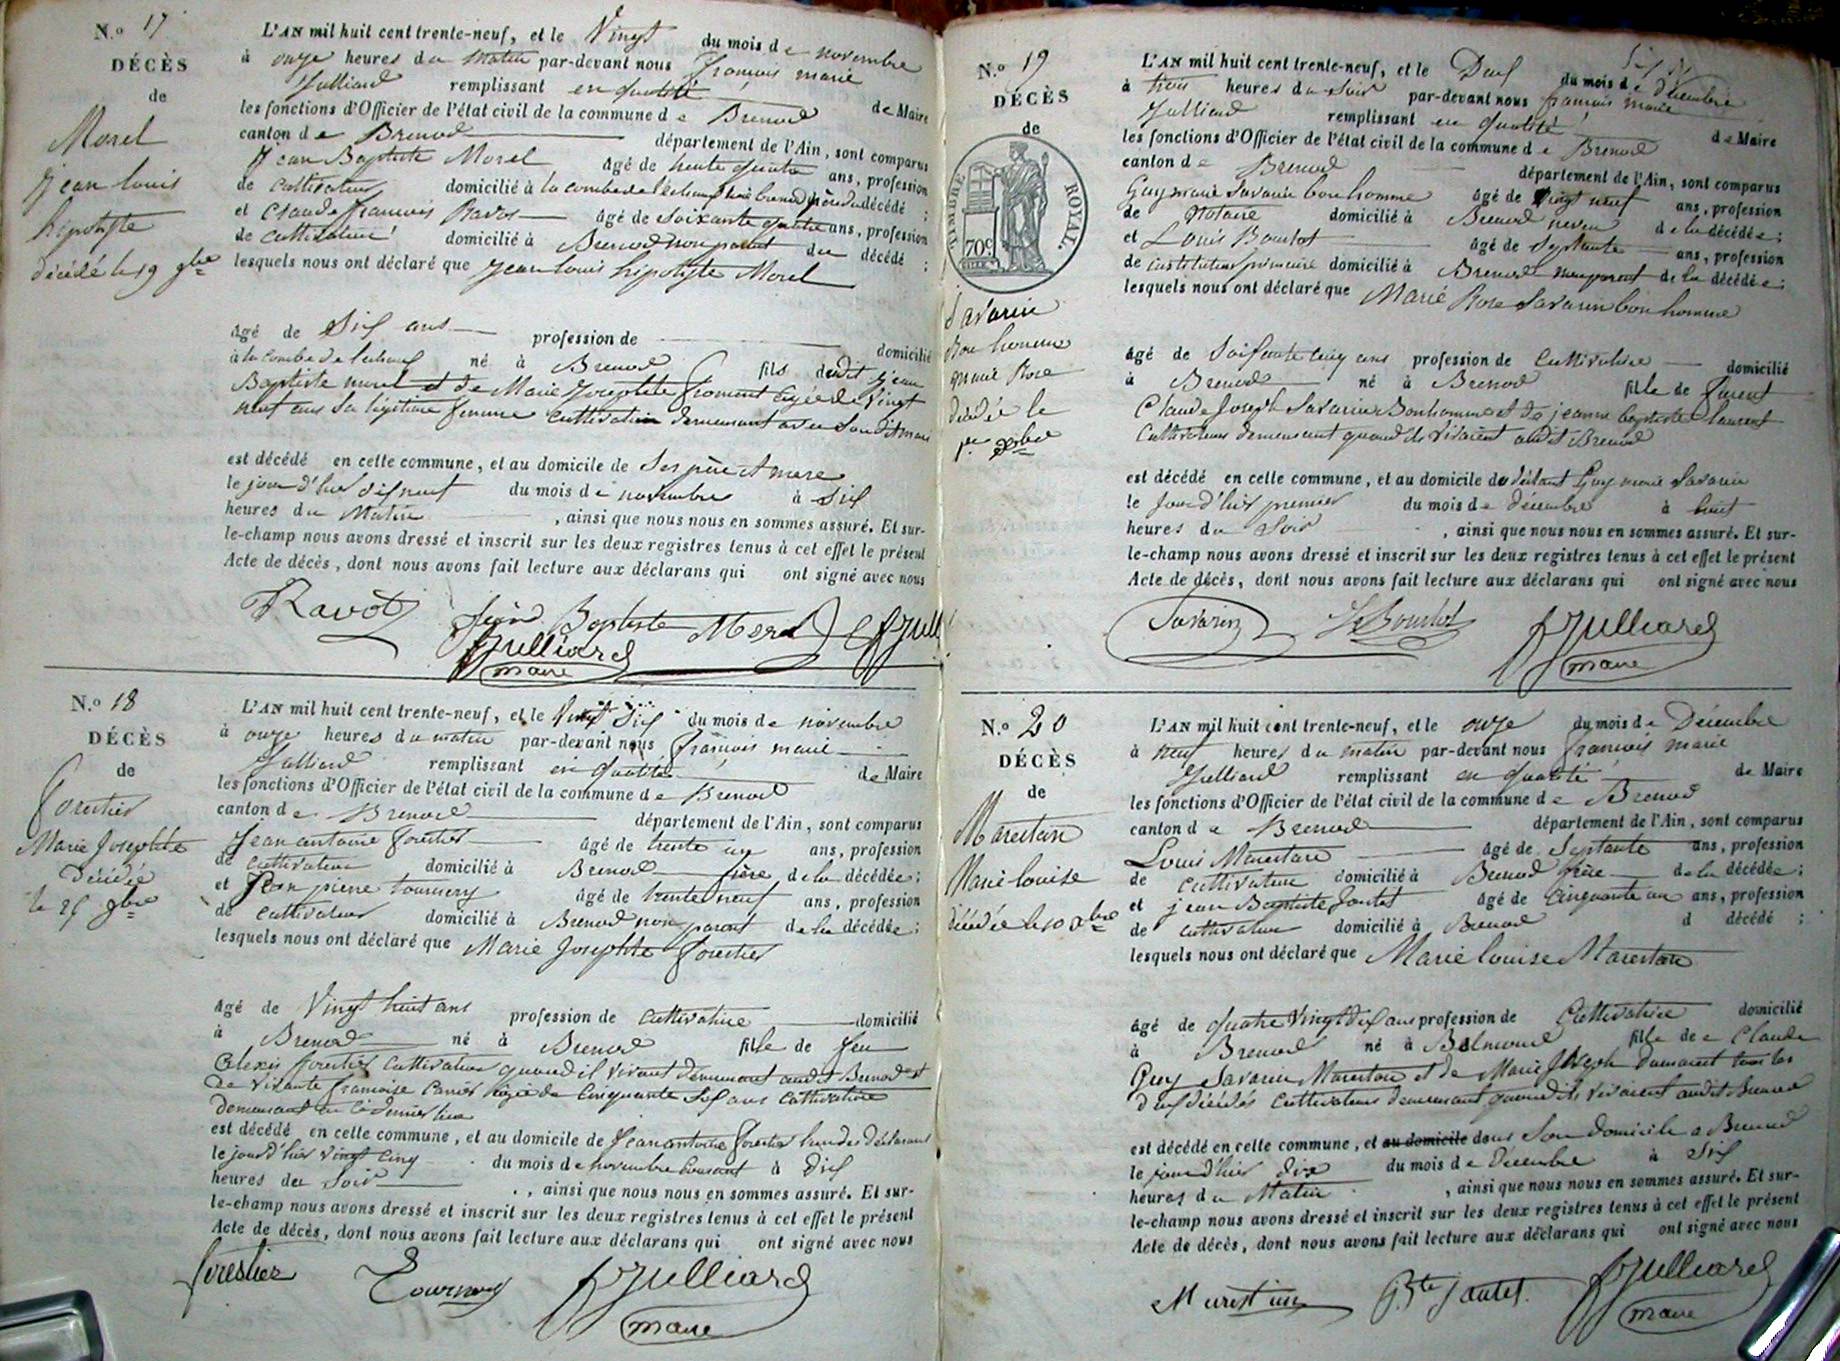 N.o 17
DÉCÈS
de
Morel
jean louis
hipolyte
décédé le 19 9bre
L'AN mil huit cent trente-neuf, et le Vingt du mois de novembre
à onze heures du matin par-devant nous françois marie
Julliard remplissant en qualité de Maire
les fonctions d'Officier de l'état civil de la commune de Brenod
canton de Brenod département de l'Ain, sont comparus
jean Baptiste Morel âgé de trente quatre ans, profession
de cultivateur domicilié à la combe de léchaux père du décédé ;
et Claude françois Ravot âgé de soixante quatre ans, profession
de cultivateur domicilié à Brenod non parent du décédé ;
lesquels nous ont déclaré que jean louis hipolyte Morel
âgé de Six ans profession de domicilié
à la combe de léchaux né à Brenod fils dudit jean
Baptiste morel et de Marie Josephte froment âgée de Vingt
neuf ans sa légitime femme cultivatrice demeurant avec son dit mari
est décédé en cette commune, et au domicile de ses père et mere
le jour d'hier dixneuf du mois de novembre à Six
heures du Matin , ainsi que nous nous en sommes assuré. Et sur-
le-champ nous avons dressé et inscrit sur les deux registres tenus à cet effet le présent
Acte de décès, dont nous avons fait lecture aux déclarans qui ont signé avec nous
Ravot Jean Baptiste Morel
Julliard
maire
N.o 18
DÉCÈS
de
forestier
Marie Josephte
Décédée
le 25 9bre
L'AN mil huit cent trente-neuf, et le Vingt Six du mois de novembre
à onze heures du matin par-devant nous françois marie
Julliard remplissant en qualité de Maire
les fonctions d'Officier de l'état civil de la commune de Brenod
canton de Brenod département de l'Ain, sont comparus
Jean antoine forestier âgé de trente un ans, profession
de cultivateur domicilié à Brenod frère de la décédée ;
et Jean pierre tournery âgé de trente neuf ans, profession
de cultivateur domicilié à Brenod non parent de la décédée ;
lesquels nous ont déclaré que Marie Josephte forestier
âgé de Vingt huit ans profession de cultivatrice domicilié
à Brenod né à Brenod fille de feu
Alexis forestier cultivateur quand il vivait demeurant audit Brenod et
de vivante françoise Carrier âgée de Cinquante Six ans cultivatrice
demeurant en ce dernier lieu
est décédé en cette commune, et au domicile de Jean antoine forestier l'un des déclarans
le jour d'hier vingt cinq du mois de novembre courant à Dix
heures du Soir , ainsi que nous nous en sommes assuré. Et sur-
le-champ nous avons dressé et inscrit sur les deux registres tenus à cet effet le présent
Acte de décès, dont nous avons fait lecture aux déclarans qui ont signé avec nous
forestier Tournery Julliard
maire
N.o 19
DÉCÈS
de
TIMBRE ROYAL.
70c
Savarin
Bon homme
marie Rose
décédée le
1er Xbre
L'AN mil huit cent trente-neuf, et le Deux du mois de décembre
à trois heures du Soir par-devant nous françois marie
Julliard remplissant en qualité de Maire
les fonctions d'Officier de l'état civil de la commune de Brenod
canton de Brenod département de l'Ain, sont comparus
Guy marie Savarin bon homme âgé de vingt neuf ans, profession
de Notaire domicilié à Brenod neveu de la décédée ;
et Louis Bourlot âgé de Septante ans, profession
de instituteur primaire domicilié à Brenod non parent de la décédée ;
lesquels nous ont déclaré que Marie Rose Savarin bon homme
âgé de Soixante cinq ans profession de Cultivatrice domicilié
à Brenod né à Brenod fille de furent
Claude Joseph Savarin Bonhomme et de jeanne baptiste laurent
Cultivateurs demeurant quand ils vivaient audit Brenod
est décédé en cette commune, et au domicile du déclarant Guy marie Savarin
le Jour d'hier premier du mois de décembre à huit
heures du Soir , ainsi que nous nous en sommes assuré. Et sur-
le-champ nous avons dressé et inscrit sur les deux registres tenus à cet effet le présent
Acte de décès, dont nous avons fait lecture aux déclarans qui ont signé avec nous
Savarin Ls Bourlot Julliard
maire
N.o 20
DÉCÈS
de
Marestan
Marie louise
décédée le 10 Xbre
L'AN mil huit cent trente-neuf, et le onze du mois de Décembre
à neuf heures du matin par-devant nous françois marie
Julliard remplissant en qualité de Maire
les fonctions d'Officier de l'état civil de la commune de Brenod
canton de Brenod département de l'Ain, sont comparus
Louis Marestan âgé de Septante ans, profession
de cultivateur domicilié à Brenod frère de la décédée ;
et jean Baptiste Jantet âgé de cinquante un ans, profession
de cultivateur domicilié à Brenod d décédé ;
lesquels nous ont déclaré que Marie louise Marestan
âgé de quatre Vingt Dix ans profession de Cultivatrice domicilié
à Brenod né à Belmond fille de Claude
Guy Savarin Marestan et de Marie Joseph Dumarest tous les
deux décédés cultivateurs demeurant quand ils vivaient audit Brenod
est décédé en cette commune, et au domicile dans Son domicile a Brenod
le jour d'hier dix du mois de Décembre à Six
heures du Matin , ainsi que nous nous en sommes assuré. Et sur-
le-champ nous avons dressé et inscrit sur les deux registres tenus à cet effet le présent
Acte de décès, dont nous avons fait lecture aux déclarans qui ont signé avec nous
Marestan Bte Jantet Julliard
maire